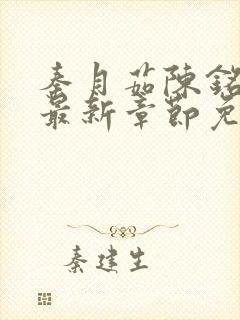 秦月茹陳銘
最新章節免
秦建生